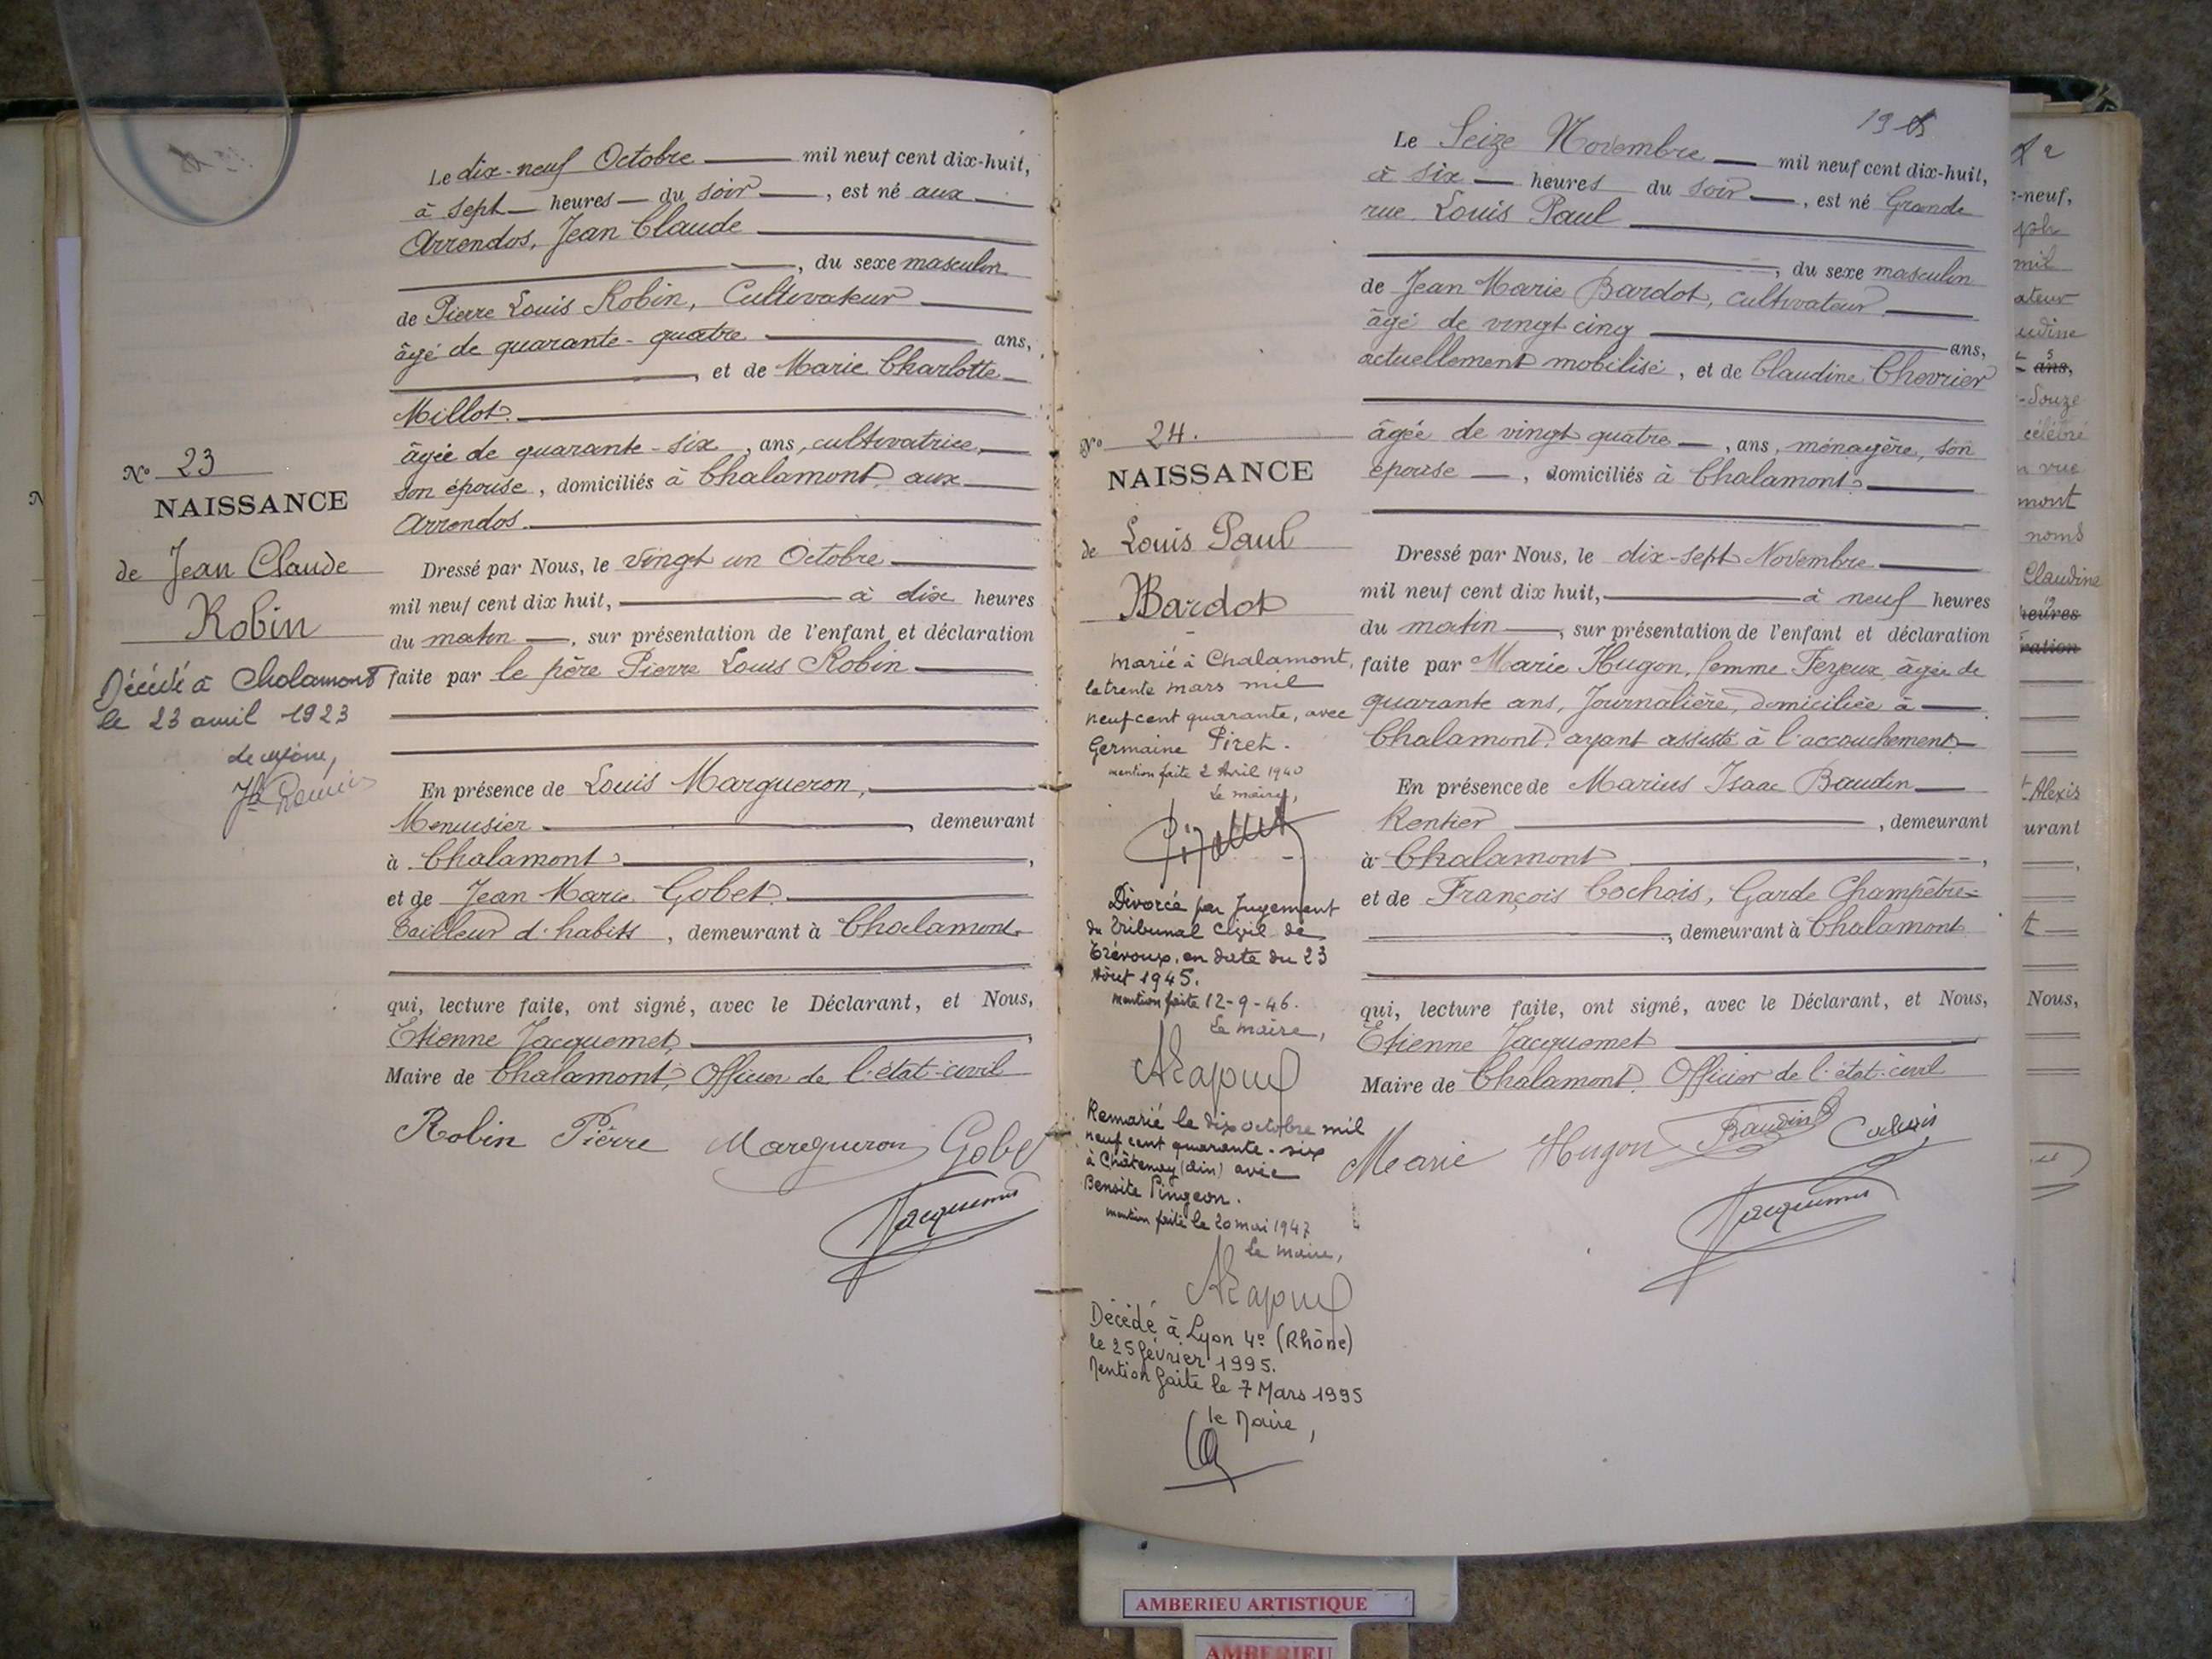 Le dix-neuf Octobre mil neuf cent dix-huit,
à sept heures du soir, est né aux
Arrendos, Jean Claude
, du sexe masculin
de Pierre Louis Robin, Cultivateur
âgé de quarante-quatre ans,
, et de Marie Charlotte
Millot
âgée de quarante-six, ans, cultivatrice,
son épouse, domiciliés à Chalamont, aux
Arrendos.
Dressé par Nous, le vingt un Octobre
mil neuf cent dix huit, à dix heures
du matin, sur présentation de l'enfant et déclaration
faite par le père Pierre Louis Robin
En présence de Louis Margueron,
Menuisier, demeurant
à Chalamont,
et de Jean Marie Gobet
Tailleur d'habits, demeurant à Chalamont
qui, lecture faite, ont signé, avec le Déclarant, et Nous,
Etienne Jacquemet,
Maire de Chalamont, Officier de l'état-civil
Robin Pierre Margueron Gobet
Jacquemet
No 23
NAISSANCE
de Jean Claude
Robin
Décédé à Chalamont
le 23 avril 1923
No 24.
NAISSANCE
de Louis Paul
Bardot
marié à Chalamont,
le trente mars mil
neuf cent quarante, avec
Germaine Piret.
mention faite 2 Avril 1940
Le maire,
Divorcé par Jugement
du Tribunal Civil de
Trévoux, en date du 23
Août 1945.
mention faite 12-9-46.
Le maire,
Remarié le dix octobre mil
neuf cent quarante-six
à Châtenay (Ain) avec
Benoite Pingeon.
mention faite le 20 mai 1947
Le maire,
Décédé à Lyon 4e (Rhône)
le 25 février 1995.
Mention faite le 7 Mars 1995
le Maire,
Le Seize Novembre mil neuf cent dix-huit,
à six heures du soir, est né Grande
rue Louis Paul
, du sexe masculin
de Jean Marie Bardot, cultivateur
âgé de vingt cinq ans,
actuellement mobilisé, et de Claudine Chevrier
âgée de vingt quatre, ans, ménagère, son
épouse, domiciliés à Chalamont
Dressé par Nous, le dix-sept Novembre
mil neuf cent dix huit, à neuf heures
du matin, sur présentation de l'enfant et déclaration
faite par Marie Hugon, femme âgée de
quarante ans, Journalière, domiciliée à
Chalamont, ayant assisté à l'accouchement
En présence de Marius Isaac Baudin
Rentier, demeurant
à Chalamont,
et de François Cochois, Garde Champêtre
, demeurant à Chalamont
qui, lecture faite, ont signé, avec le Déclarant, et Nous,
Etienne Jacquemet
Maire de Chalamont, Officier de l'état-civil
Marie Hugon Baudin Cochois
Jacquemet
-neuf,
mil
ateur
udine
ans,
-Douze
célébré
n vue
mont
noms
Claudine
heures
ration
Alexis
urant
Nous,
AMBERIEU ARTISTIQUE
AMBERIEU